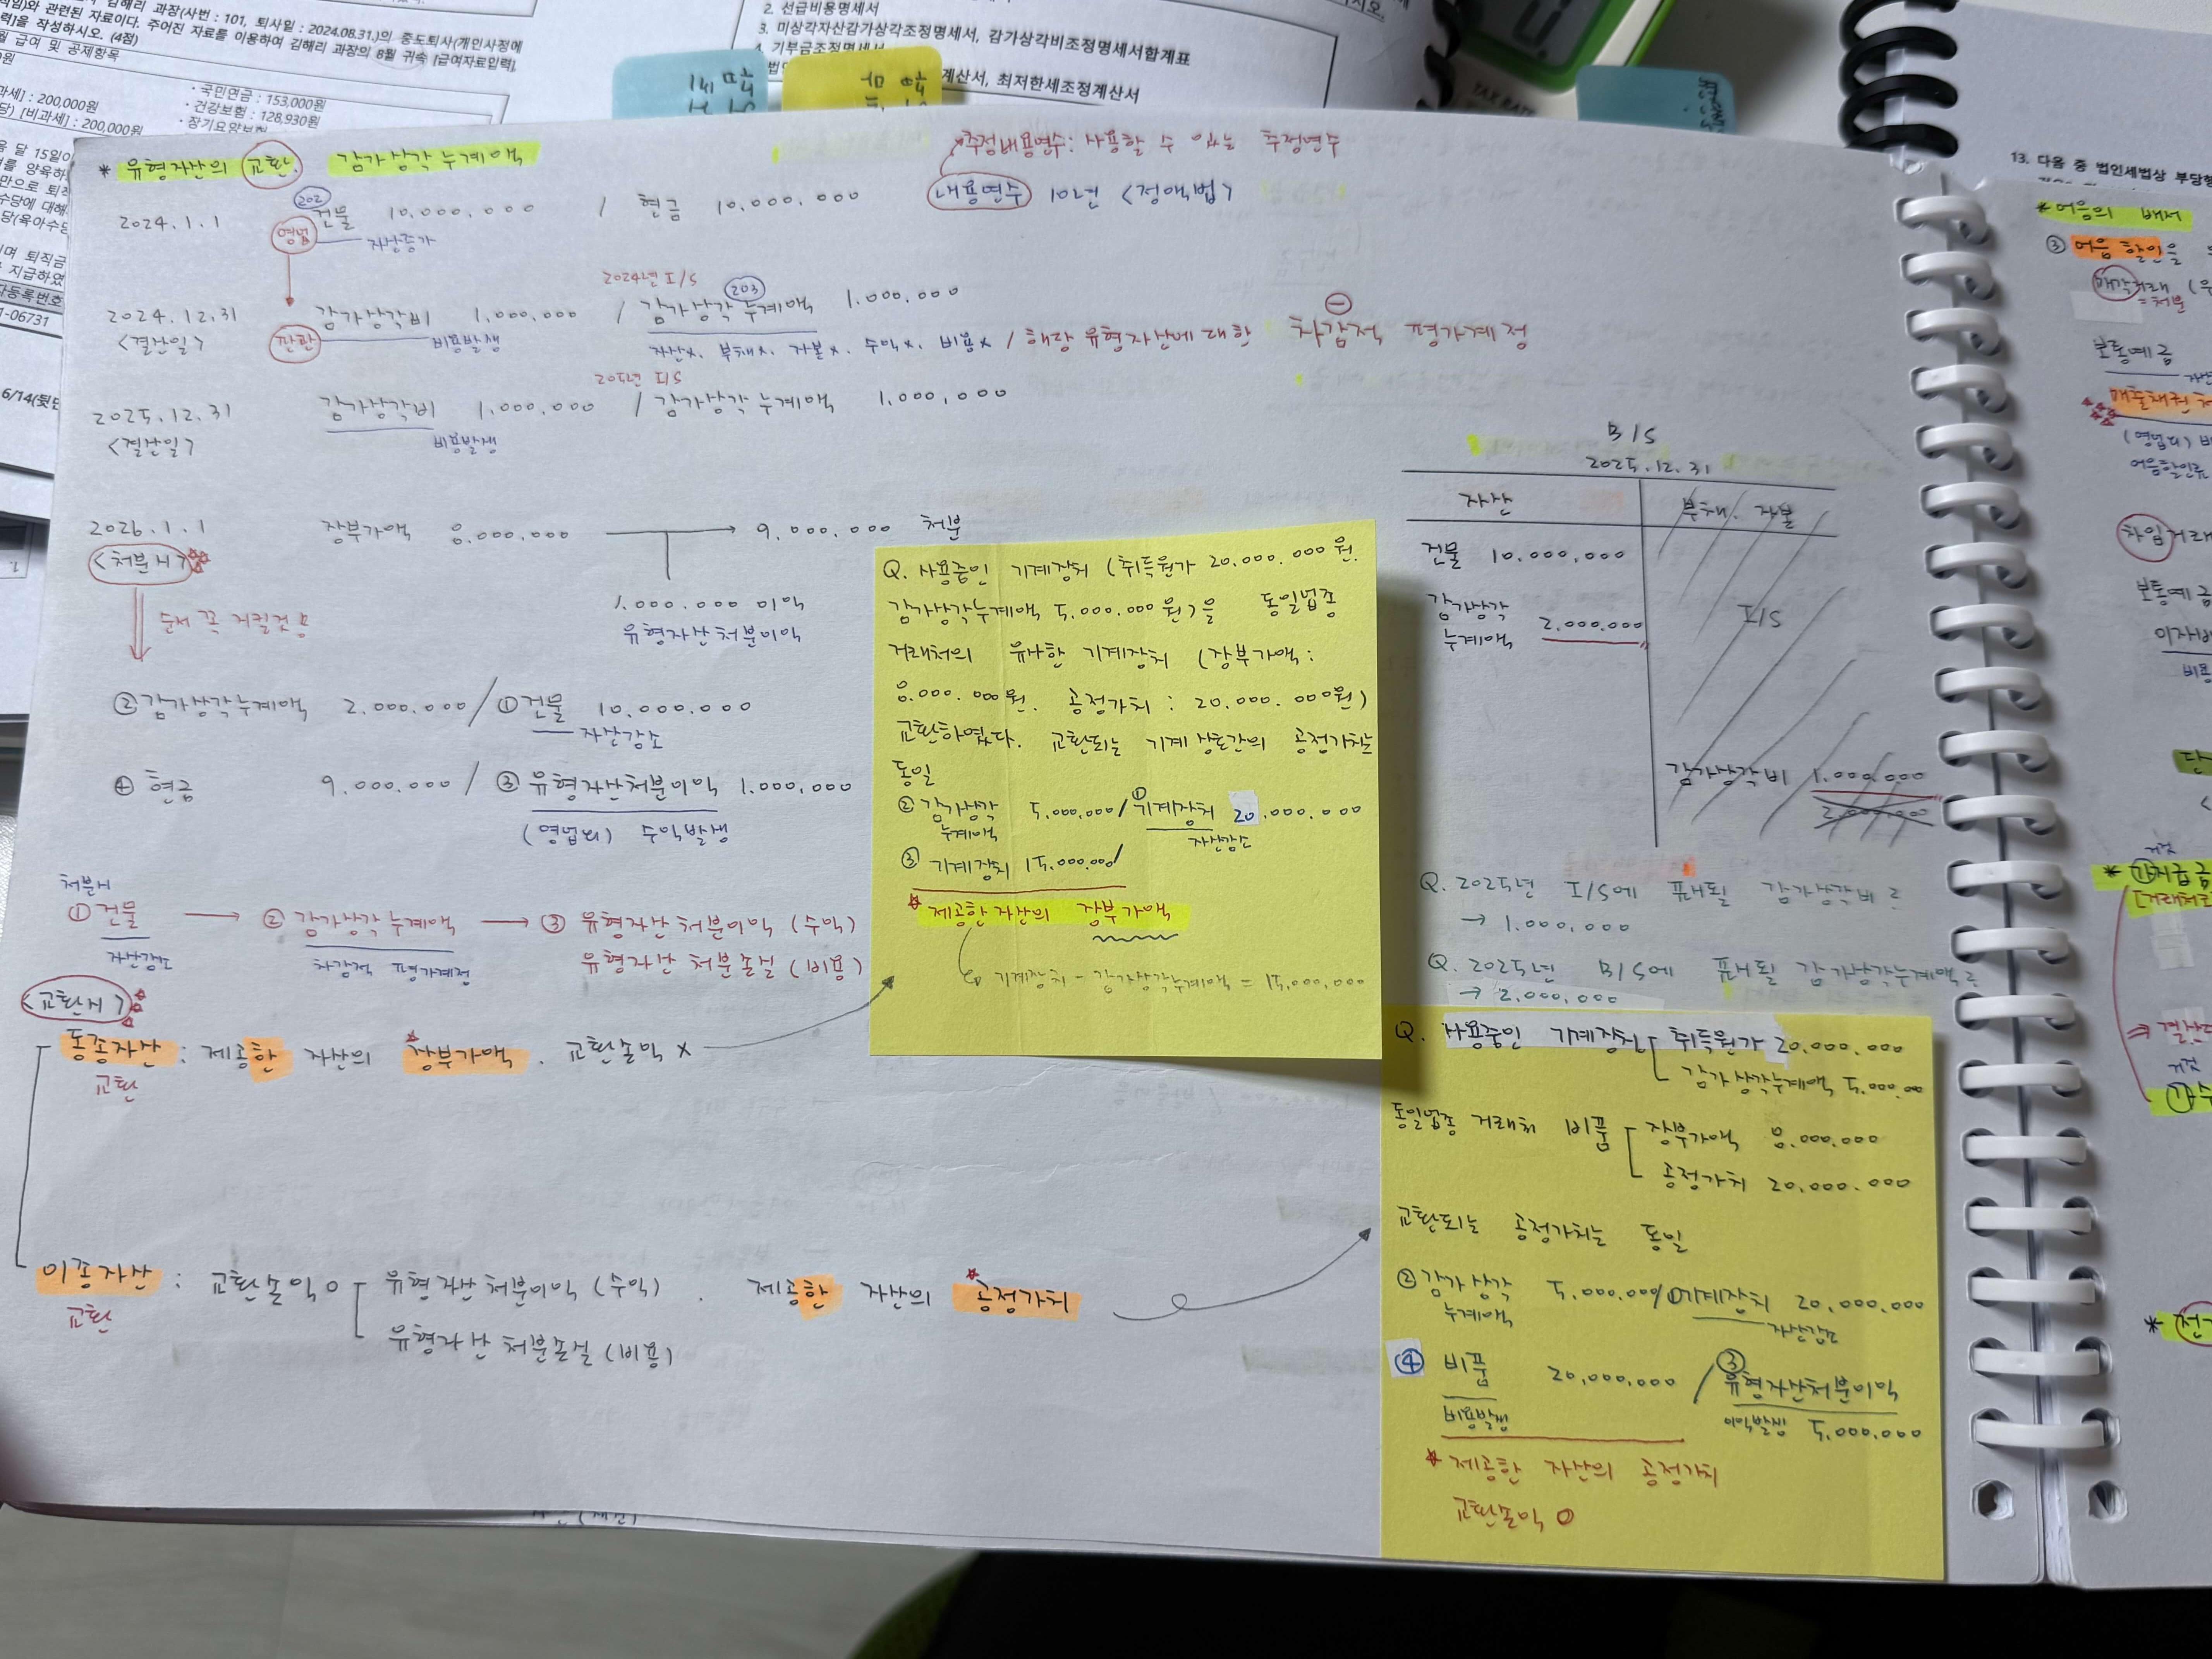 임)와 관련된 자료이다. 주어진 자료를 이용하여 김해리 과장의 8월 귀속 [급여자료입력]
김해리 과장(사번 : 101, 퇴사일 : 2024.08.31.)의 중도퇴사(개인사정에
력]을 작성하시오. (4점)
월 급여 및 공제항목
과세] : 200,000원
당) [비과세] : 200,000원
· 국민연금 : 153,000원
· 건강보험 : 128,930원
· 장기요양보험
음 달 15일이
1-06731
2. 선급비용명세서
3. 미상각자산감가상각조정명세서, 감가상각비조정명세서합계표
4. 기부금조정명세서
계산서, 최저한세조정계산서
* 유형자산의 교환. 감가상각누계액
추정내용연수: 사용할 수 있는 추정연수
2024.1.1 202 건물 10,000,000 / 현금 10,000,000 내용연수 10년 <정액법>
영업 자산증가
2024년 I/S
2024.12.31 감가상각비 1,000,000 / 203 감가상각누계액 1,000,000
<결산일> 판관 비용발생 자산x. 부채x. 자본x. 수익x. 비용x / 해당 유형자산에 대한 차감적 평가계정
⊖
2025년 I/S
2025.12.31 감가상각비 1,000,000 / 감가상각누계액 1,000,000
<결산일> 비용발생
2026.1.1 장부가액 8,000,000 → 9,000,000 처분
<처분시>
1,000,000 이익
순서 꼭 지킬것
유형자산처분이익
② 감가상각누계액 2,000,000 / ① 건물 10,000,000
자산감소
④ 현금 9,000,000 / ③ 유형자산처분이익 1,000,000
(영업외) 수익발생
처분시
① 건물 → ② 감가상각누계액 → ③ 유형자산처분이익 (수익)
자산감소 차감적 평가계정 유형자산처분손실 (비용)
<교환시>
동종자산 : 제공한 자산의 장부가액. 교환손익 x
교환
이종자산 : 교환손익 o 유형자산처분이익 (수익) . 제공한 자산의 공정가치
교환 유형자산처분손실 (비용)
Q. 사용중인 기계장치 (취득원가 20,000,000원.
감가상각누계액 5,000,000원)을 동일업종
거래처의 유사한 기계장치 (장부가액:
8,000,000원. 공정가치 : 20,000,000원)
교환하였다. 교환되는 기계 상호간의 공정가치는
동일
② 감가상각누계액 5,000,000 / ① 기계장치 20,000,000
자산감소
③ 기계장치 15,000,000 /
* 제공한 자산의 장부가액
기계장치 - 감가상각누계액 = 15,000,000
B/S
2025.12.31
자산 부채. 자본
건물 10,000,000
감가상각누계액 2,000,000
I/S
감가상각비 1,000,000
2,000,000
Q. 2025년 I/S에 표시될 감가상각비는
→ 1,000,000
Q. 2025년 B/S에 표시될 감가상각누계액은
→ 2,000,000
Q. 사용중인 기계장치 취득원가 20,000,000
감가상각누계액 5,000,000
동일업종 거래처 비품 장부가액 8,000,000
공정가치 20,000,000
교환되는 공정가치는 동일
② 감가상각누계액 5,000,000 / ① 기계장치 20,000,000
자산감소
④ 비품 20,000,000 / ③ 유형자산처분이익
비용발생 이익발생 5,000,000
* 제공한 자산의 공정가치
교환손익 o
13. 다음 중 법인세법상 부당행
* 어음의 배서
③ 어음 할인을
매각거래
= 처분
보통예금
매출채권처
(영업외)
어음할인료
차입거래
보통예금
이자비
비용